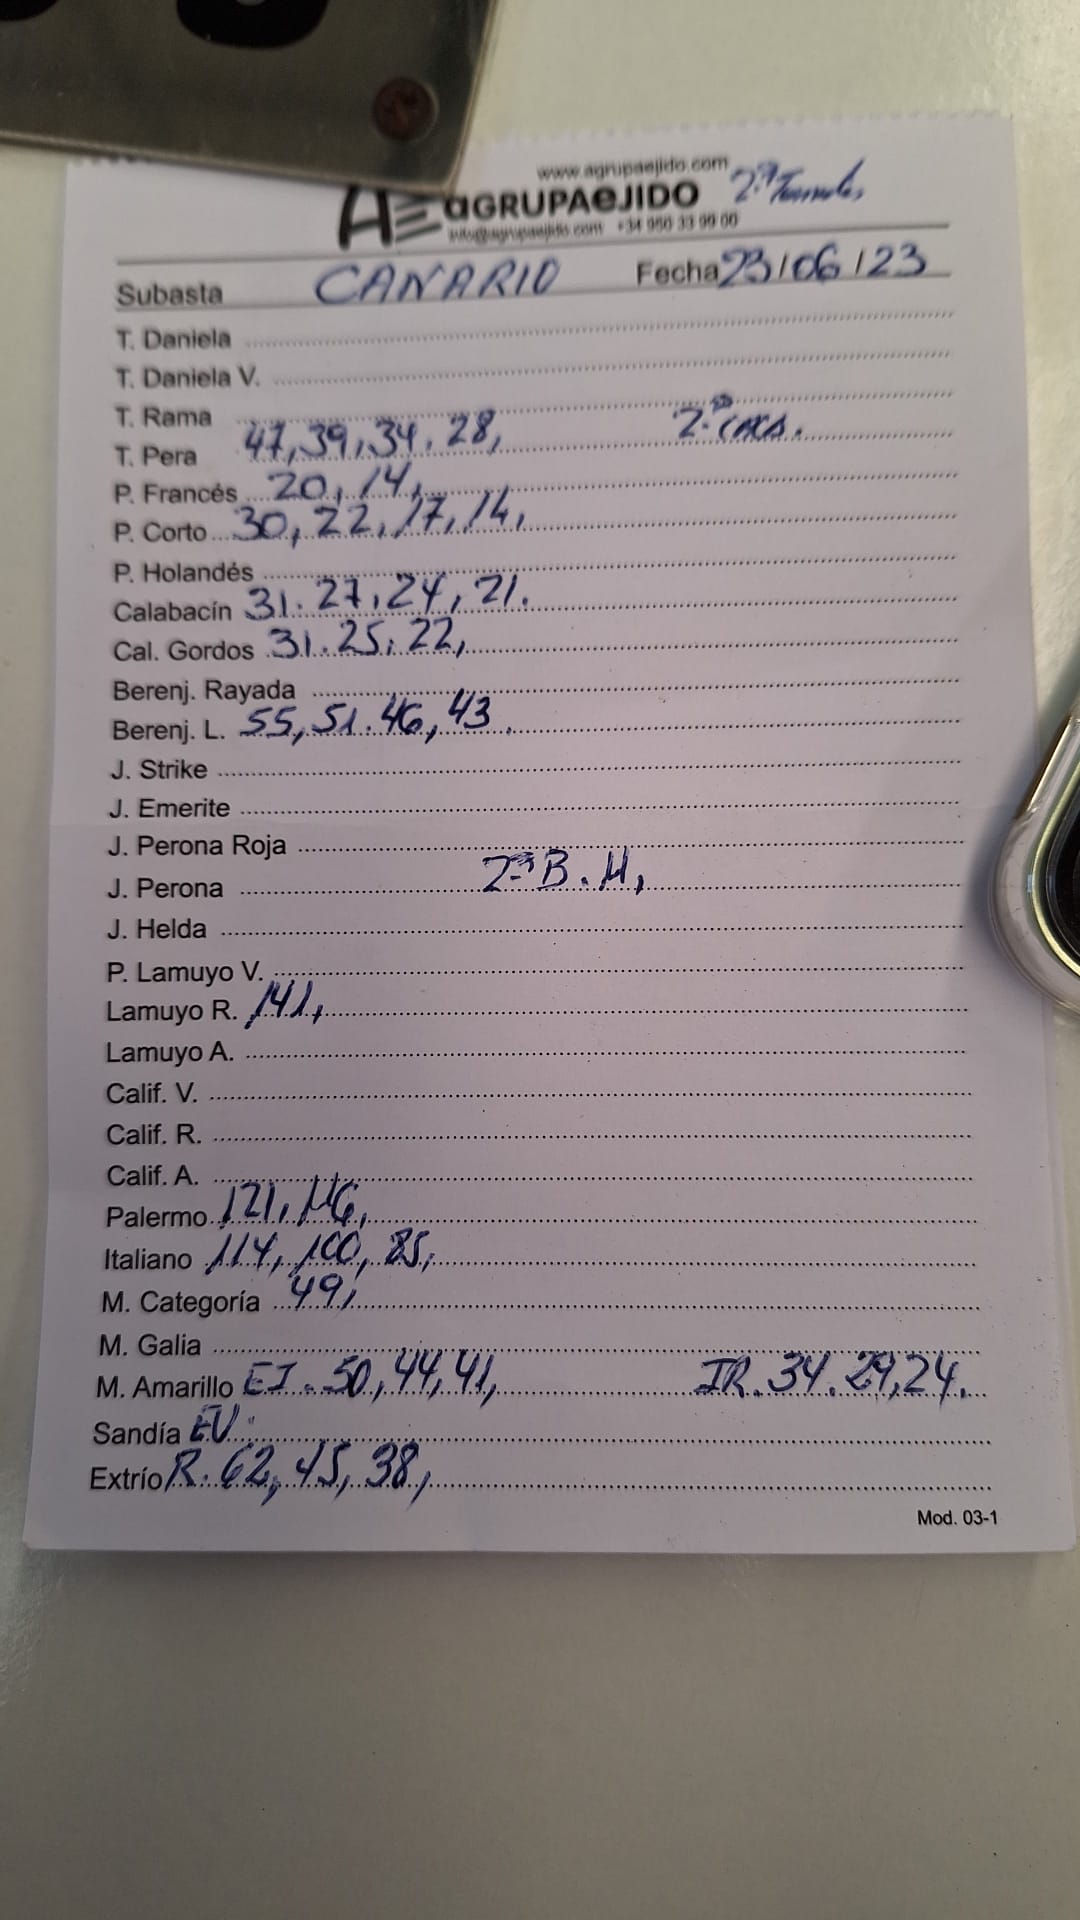 www.agrupaejido.com
AE aGRUPAeJIDO 2ª
info@agrupaejido.com +34 950 33 99 00
Subasta CANARIO Fecha 23/06/23
T. Daniela
T. Daniela V.
T. Rama
T. Pera 47, 39, 34. 28, 2.ª
P. Francés 20, 14,
P. Corto 30, 22, 17, 14,
P. Holandés
Calabacín 31. 27, 24, 21.
Cal. Gordos 31. 25, 22,
Berenj. Rayada
Berenj. L. 55, 51. 46, 43.
J. Strike
J. Emerite
J. Perona Roja
J. Perona 2ª B. M,
J. Helda
P. Lamuyo V.
Lamuyo R. 141,
Lamuyo A.
Calif. V.
Calif. R.
Calif. A.
Palermo 121, 116,
Italiano 114, 100, 85,
M. Categoría 49,
M. Galia
M. Amarillo EJ. 50, 44, 41, IR. 34. 29, 24.
Sandía EV.
Extrío R. 62, 45, 38,
Mod. 03-1